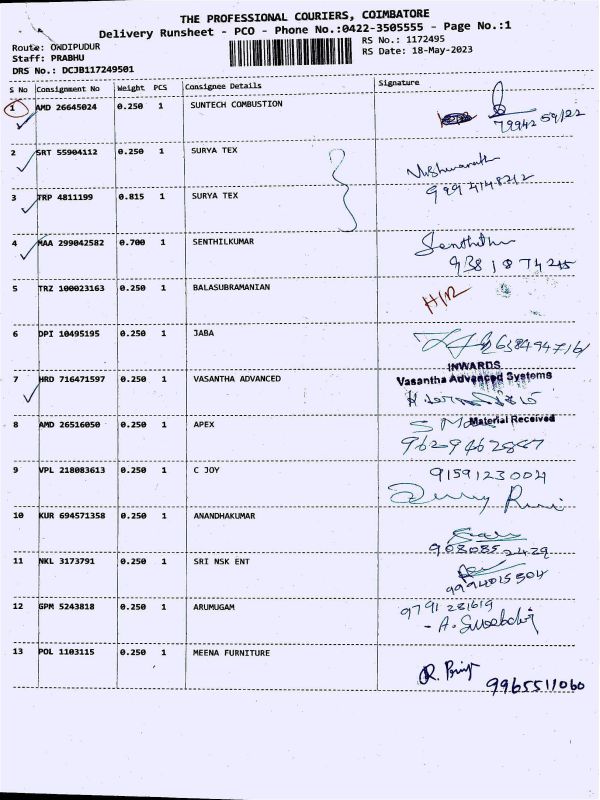 THE PROFESSIONAL COURIERS, COIMBATORE
Delivery Runsheet - PCO - Phone No.:0422-3505555 - Page No.:1
Route: OWDIPUDUR
RS No.: 1172495
Staff: PRABHU
RS Date: 18-May-2023
DRS No.: DCJB117249501
S No Consignment No Weight PCS Consignee Details Signature
1 AMD 26645024 0.250 1 SUNTECH COMBUSTION
2 SRT 55904112 0.250 1 SURYA TEX
3 TRP 4811199 0.815 1 SURYA TEX
4 MAA 299042582 0.700 1 SENTHILKUMAR Senthil
5 TRZ 100023163 0.250 1 BALASUBRAMANIAN
6 DPI 10495195 0.250 1 JABA
INWARDS
7 HRD 716471597 0.250 1 VASANTHA ADVANCED Vasantha Advanced Systems
8 AMD 26516050 0.250 1 APEX Material Received
9 VPL 218083613 0.250 1 C JOY 9159123004
10 KUR 694571358 0.250 1 ANANDHAKUMAR
9080852429
11 NKL 3173791 0.250 1 SRI NSK ENT
9994015504
12 GPM 5243818 0.250 1 ARUMUGAM 9791281619
13 POL 1103115 0.250 1 MEENA FURNITURE
9965511060